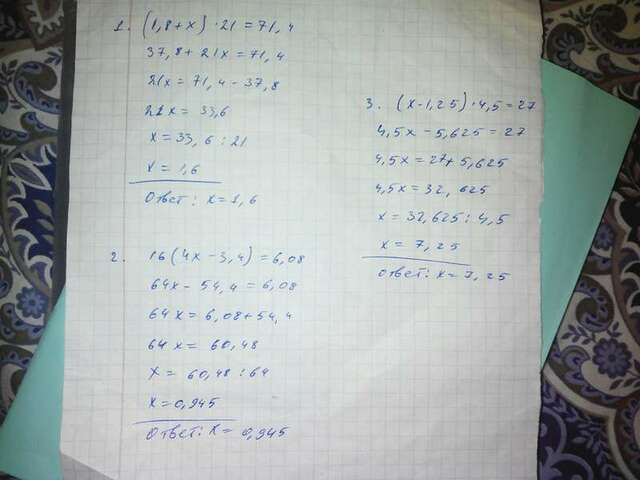 1. (1,8+x)·21=71,4
37,8+21x=71,4
21x=71,4-37,8
21x=33,6
x=33,6:21
x=1,6
Ответ: x=1,6
2. 16(4x-3,4)=6,08
64x-54,4=6,08
64x=6,08+54,4
64x=60,48
x=60,48:64
x=0,945
Ответ: x=0,945
3. (x-1,25)·4,5=27
4,5x-5,625=27
4,5x=27+5,625
4,5x=32,625
x=32,625:4,5
x=7,25
Ответ: x=7,25